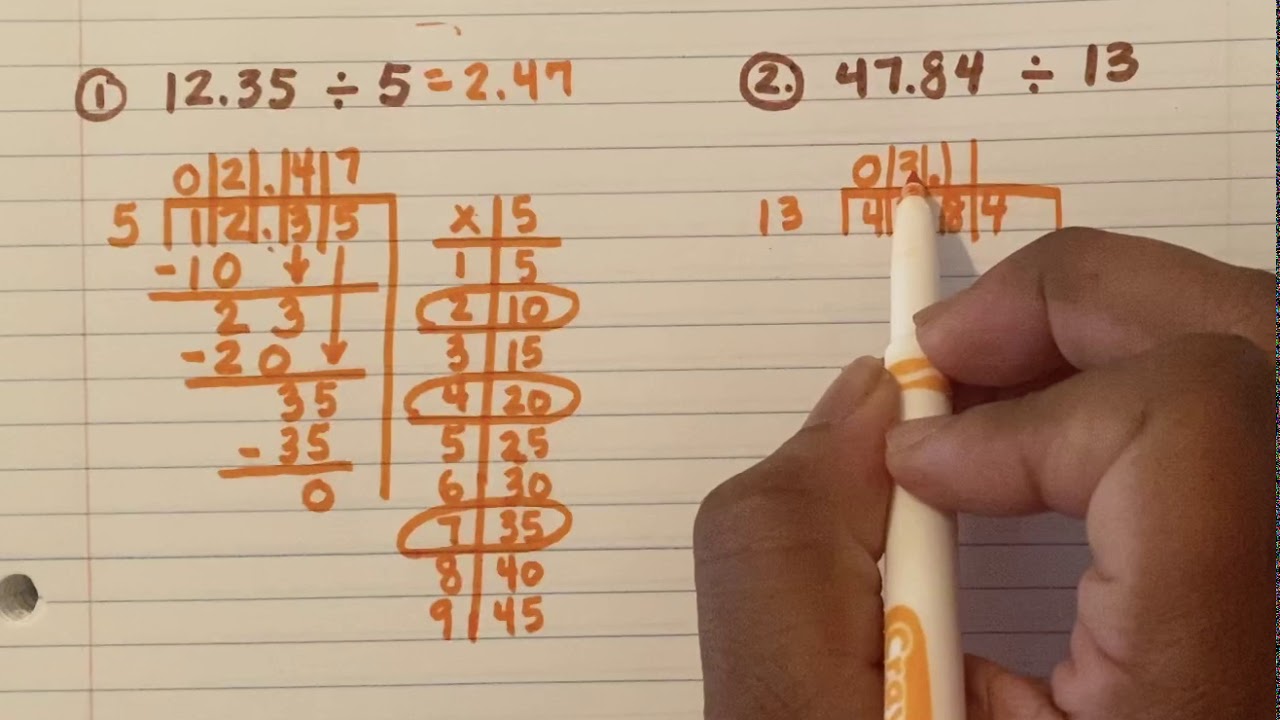 ① 12.35 ÷ 5 = 2.47
0 2 . 4 7
5 1 2 . 3 5
- 1 0
2 3
- 2 0
3 5
- 3 5
0
x 5
1 5
2 10
3 15
4 20
5 25
6 30
7 35
8 40
9 45
②. 47.84 ÷ 13
0 3 .
13 4 8 4